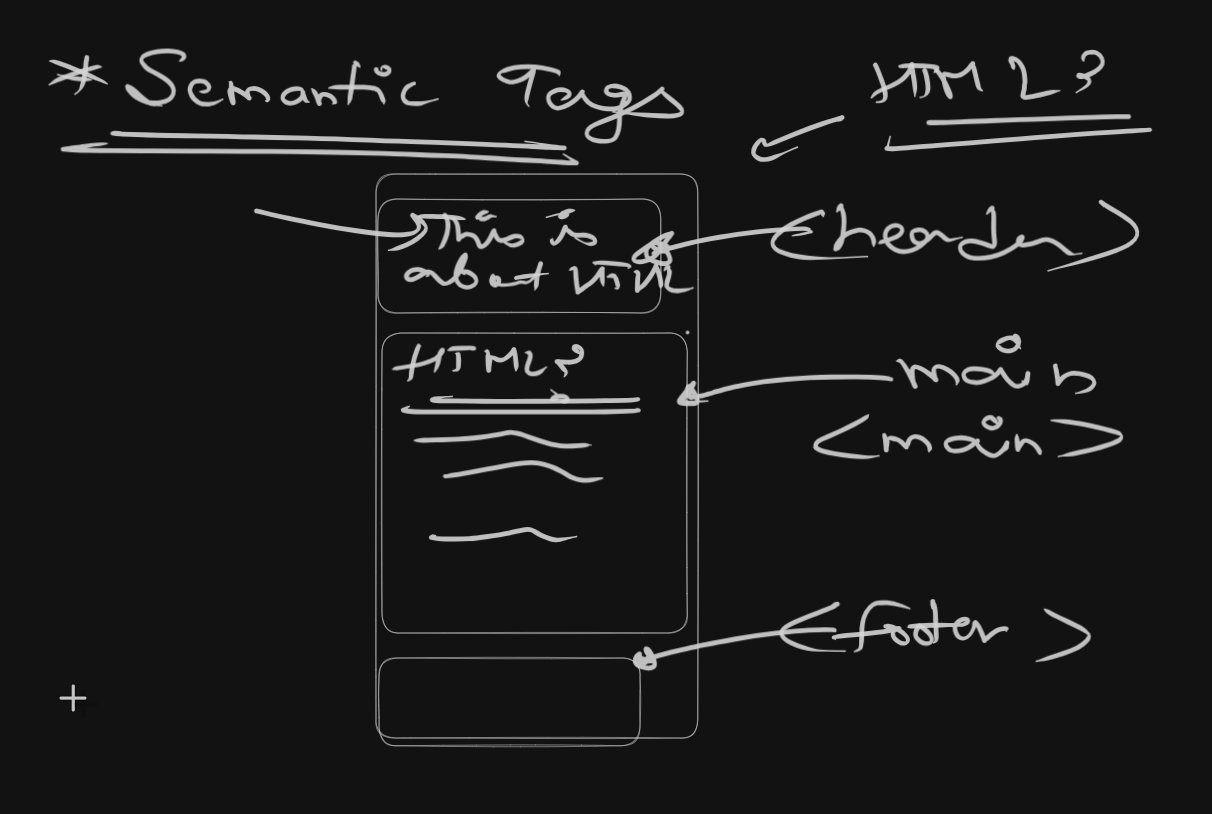 * Semantic Tags
HTML?
This is
about HTML
<header>
HTML?
main
<main>
<footer>